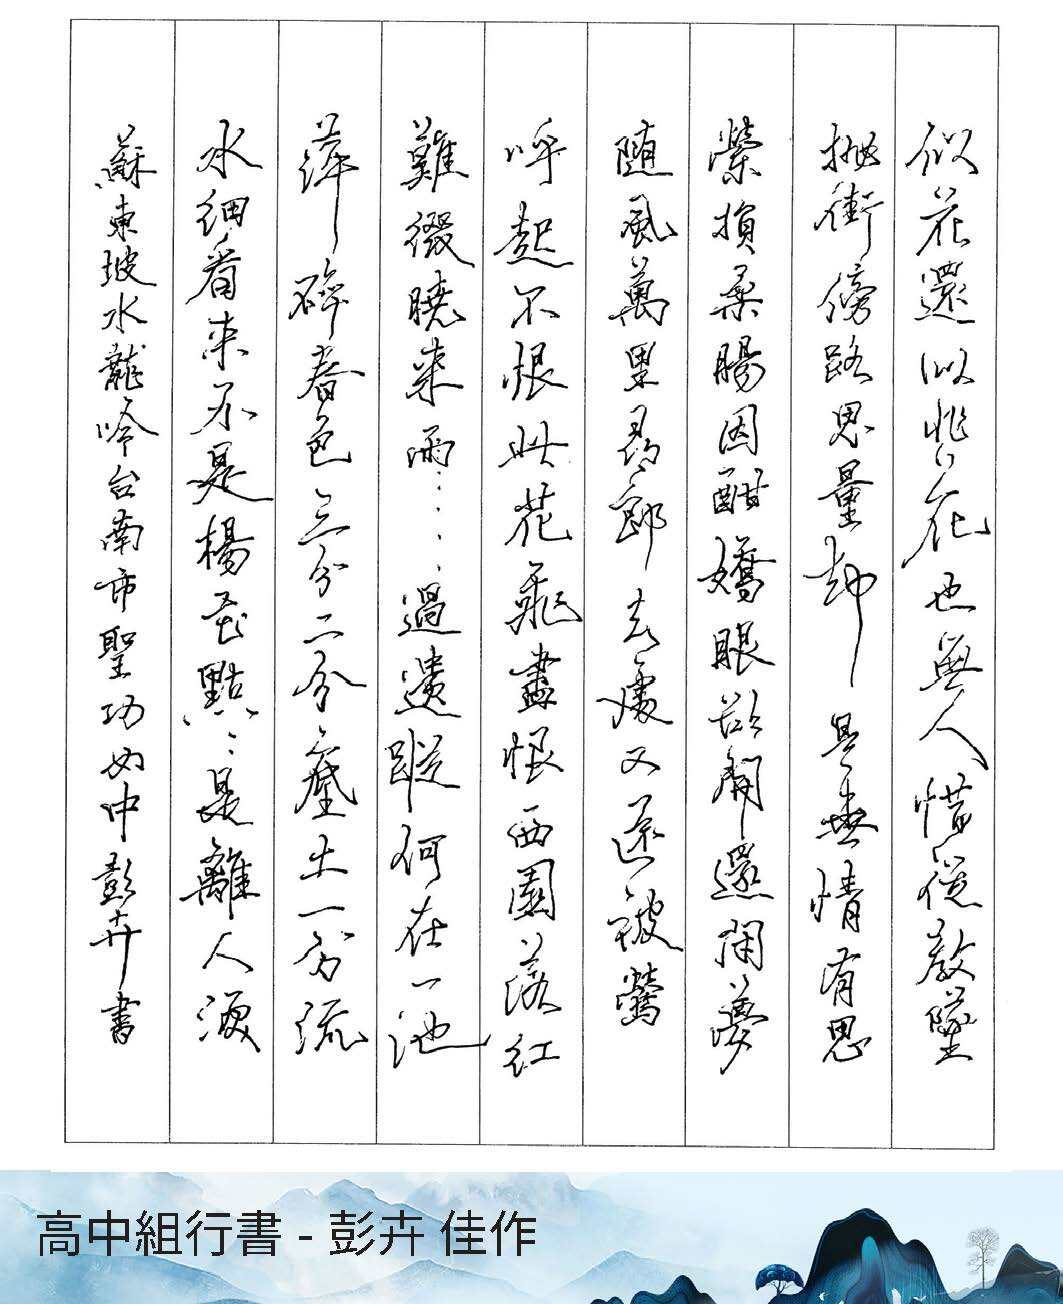 似花還似非花也無人惜從教墜
拋街傍路思量却是無情有思
縈損柔腸因酣嬌眼欲開還閉夢
隨風萬里尋郎去處又還被鶯
呼起不恨此花飛盡恨西園落紅
難綴曉來雨⋯⋯過遺蹤何在一池
萍碎春色三分二分塵土一分流
水細看來不是楊花點⋯是離人淚
蘇東坡水龍吟台南市聖功女中彭卉書
高中組行書 - 彭卉 佳作